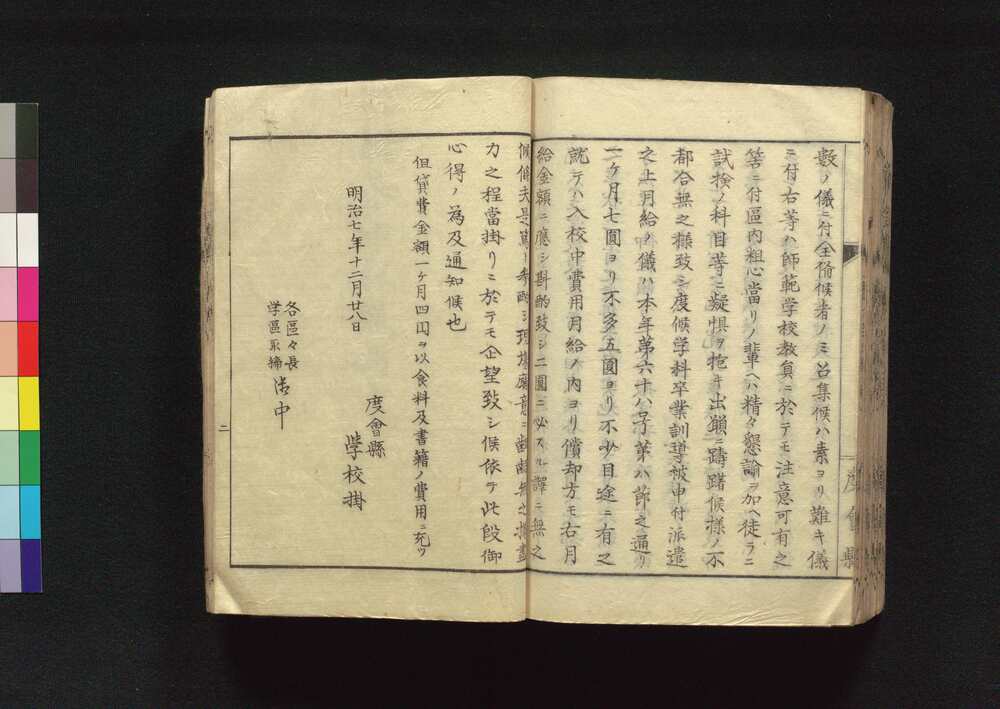 數ノ儀ニ付全脩候者ノミ召集候ハ素ヨリ難キ儀
ニ付右等ハ師範学校教負ニ於テモ注意可有之
筈ニ付區内粗心當リノ輩ヘハ精々懇諭ヲ加ヘ徒ラニ
試検ノ科目等ニ疑惧ヲ抱キ出願ニ躊躇候様ノ不
都合無之様致シ度候学科卒業訓導被申付派遣
之上月給ノ儀ハ本年第六十八号第八節之通リ
一ケ月七圓ヨリ不多五圓ヨリ不少目途ニ有之
就テハ入校中費用月給ノ内ヨリ償却方モ右月
給金額ニ應シ斟酌致シ二圓ニ必スル譯ニ無之
候條夫是篤ト参酌シ
力之程當掛リニ於テモ企望致シ候依テ此段御
心得ノ為及通知候也
但貸費金額一ケ月四円ヲ以食料及書籍ノ費用ニ充ツ
明治七年十二月廿八日
度會縣
学校掛
各區々長
学區取締
御中
二
度會縣